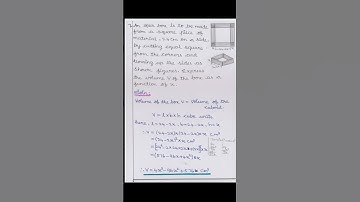 An open box is to be made
from a square piece of
material 24 cm on a side
by cutting equal square
from the corners and
turning up the sides as
shown figure. Express
the volume V of the box as a
function of x.
Soln:
Volume of the box V = Volume of the
cuboid
V = l x b x h cubic units
here, l = 24-2x, b = 24-2x, h = x
∴ V = (24-2x)(24-2x)x cm³
= (24-2x)² x cm³
= (576 - 96x + 4x²)x
∴ V = 4x³ - 96x² + 576x cm³